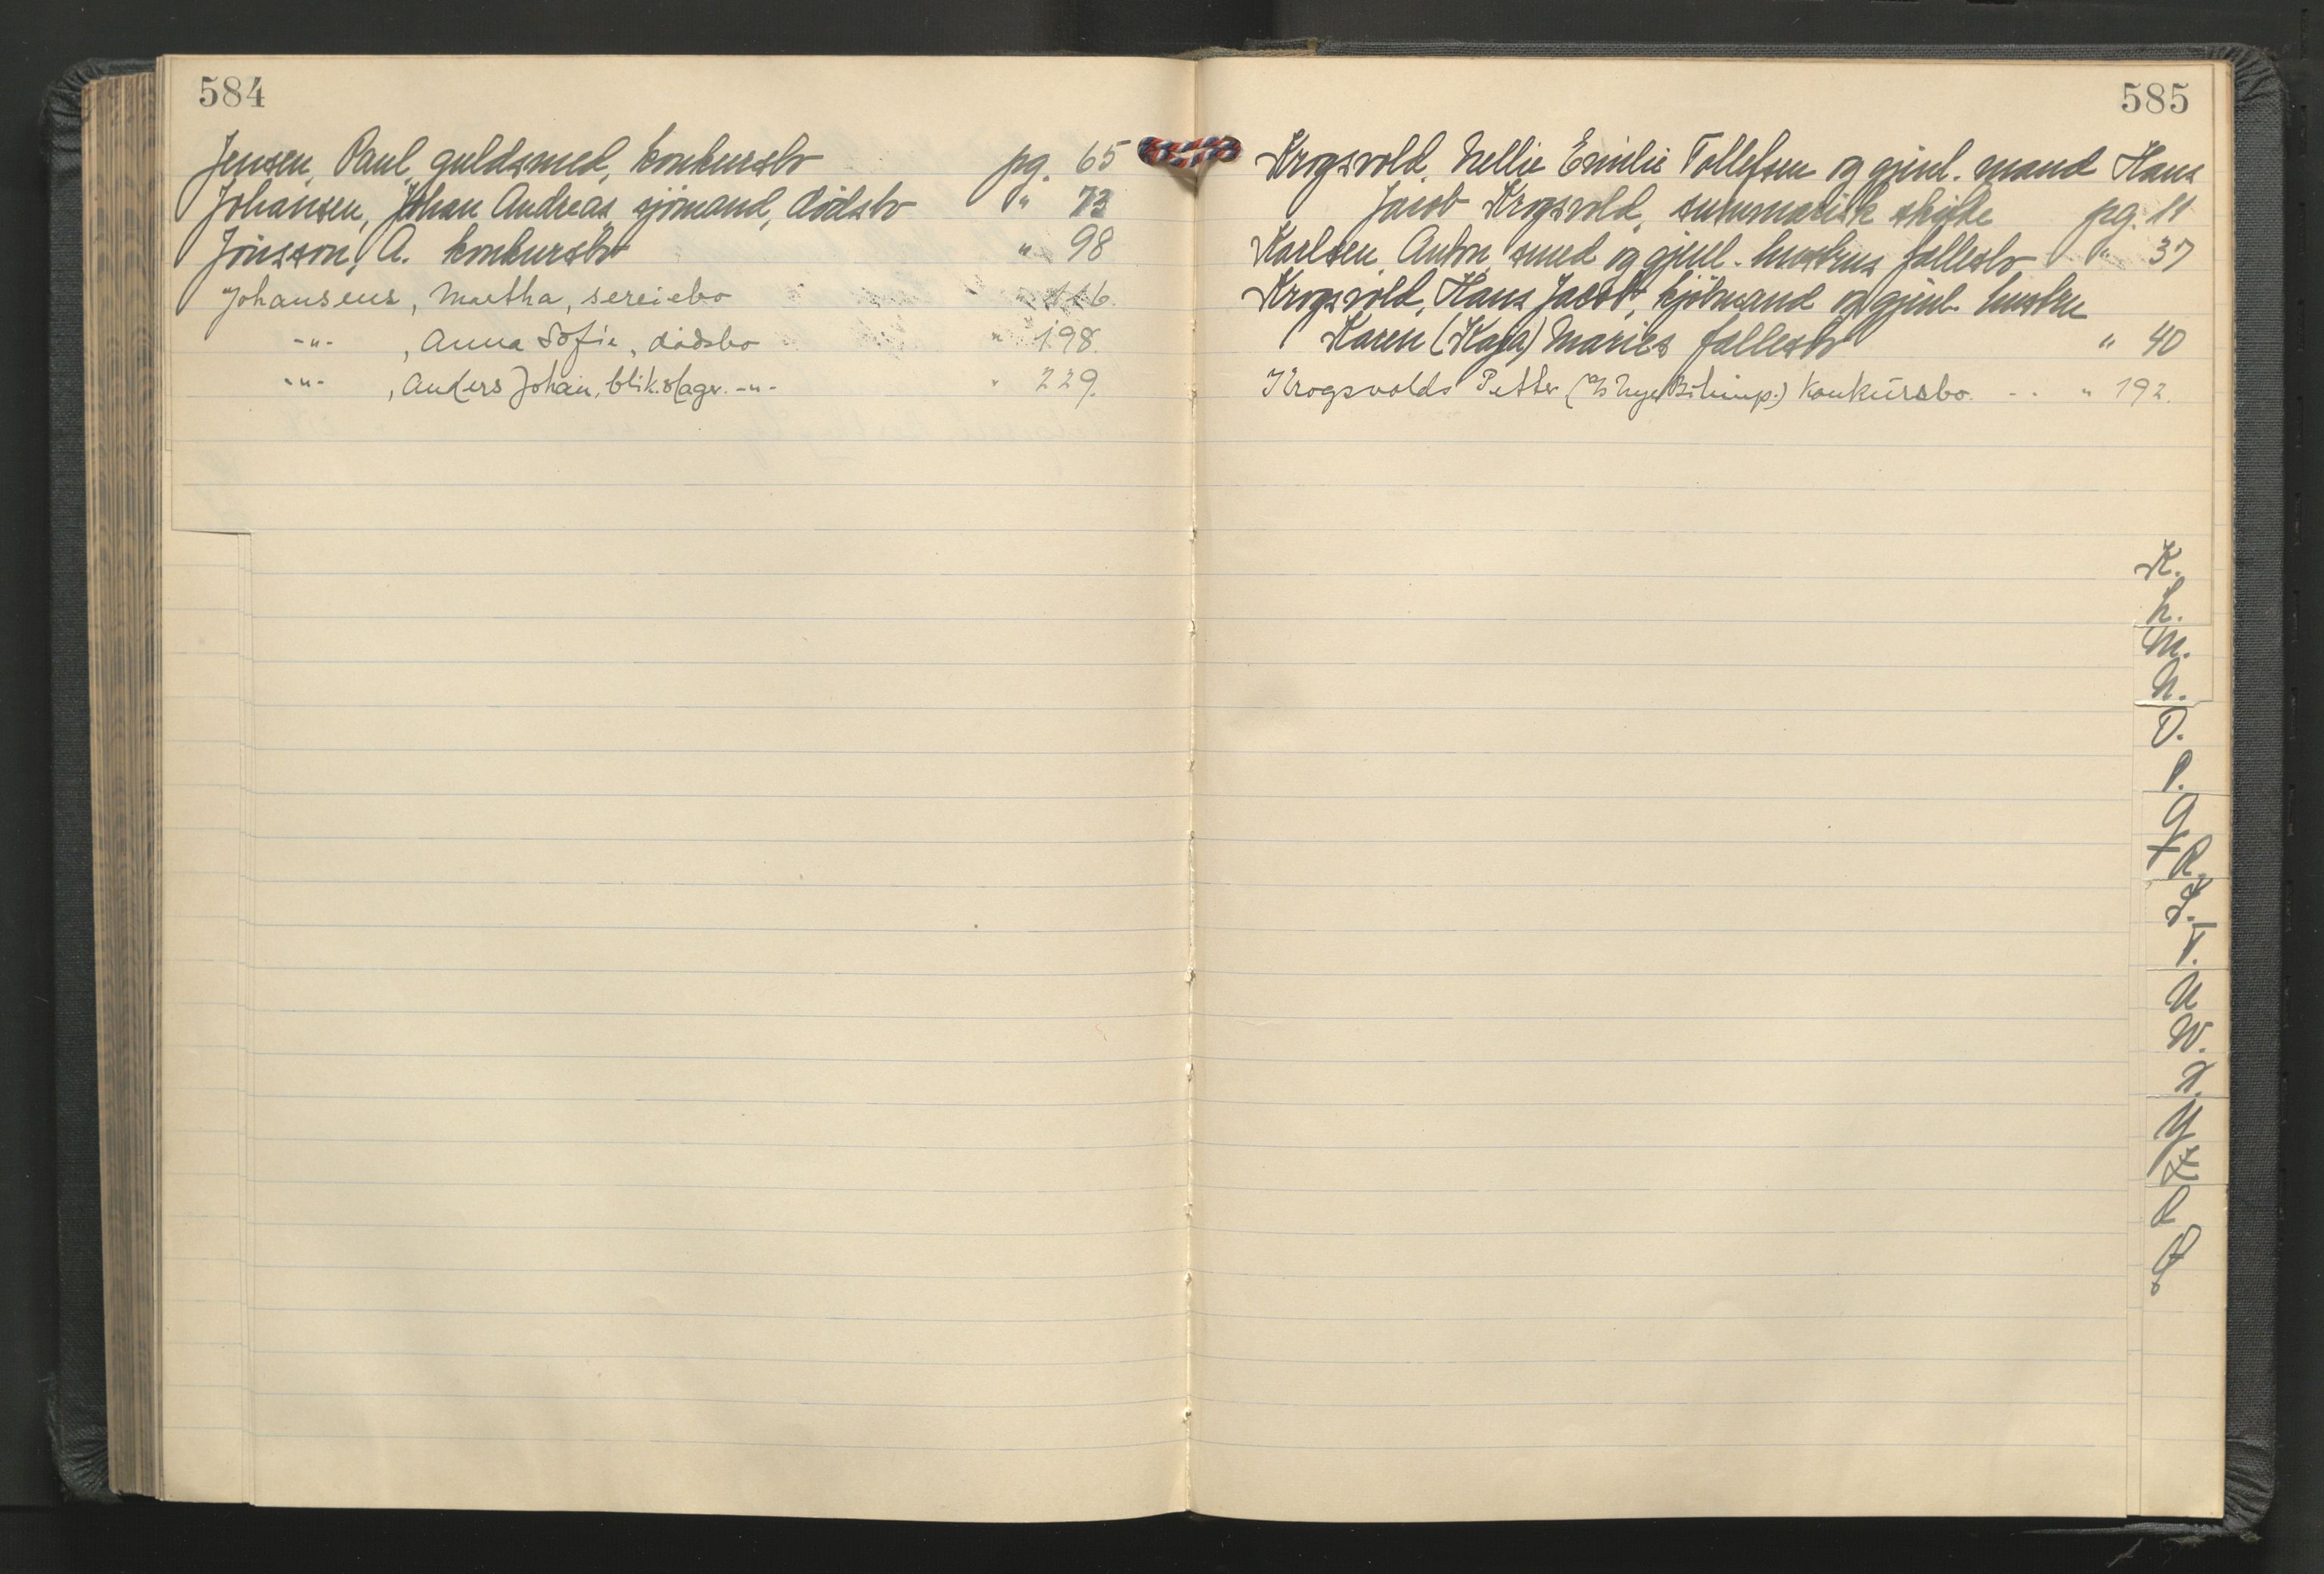 584
Jensen, Paul, guldsmed, konkursbo pg. 65
Johansen, Johan Andreas, sjömand, dödsbo " 73
Jönsson, A. konkursbo " 98
Johansens, Martha, sereiebo " 116.
-"- , Anna Sofie, dødsbo " 198.
-"- , Anders Johan, blikslager. -"- " 229.
585
Krogsvold, Nellie Emilie Tollefsen og gjenl. mand Hans
Jacob Krogsvold, summarisk skifte pg. 11
Karlsen, Anton, smed og gjenl. hustrus fallesbo " 37
Krogsvold, Hans Jacob, kjöbmand og gjenl. hustru
Karen (Kaja) Maries fallesbo " 40
Krogsvolds Petter Konkursbo. " 192.
K.
L.
M.
N.
O.
P.
Q
R.
S.
T.
U
W.
X.
Y
Æ